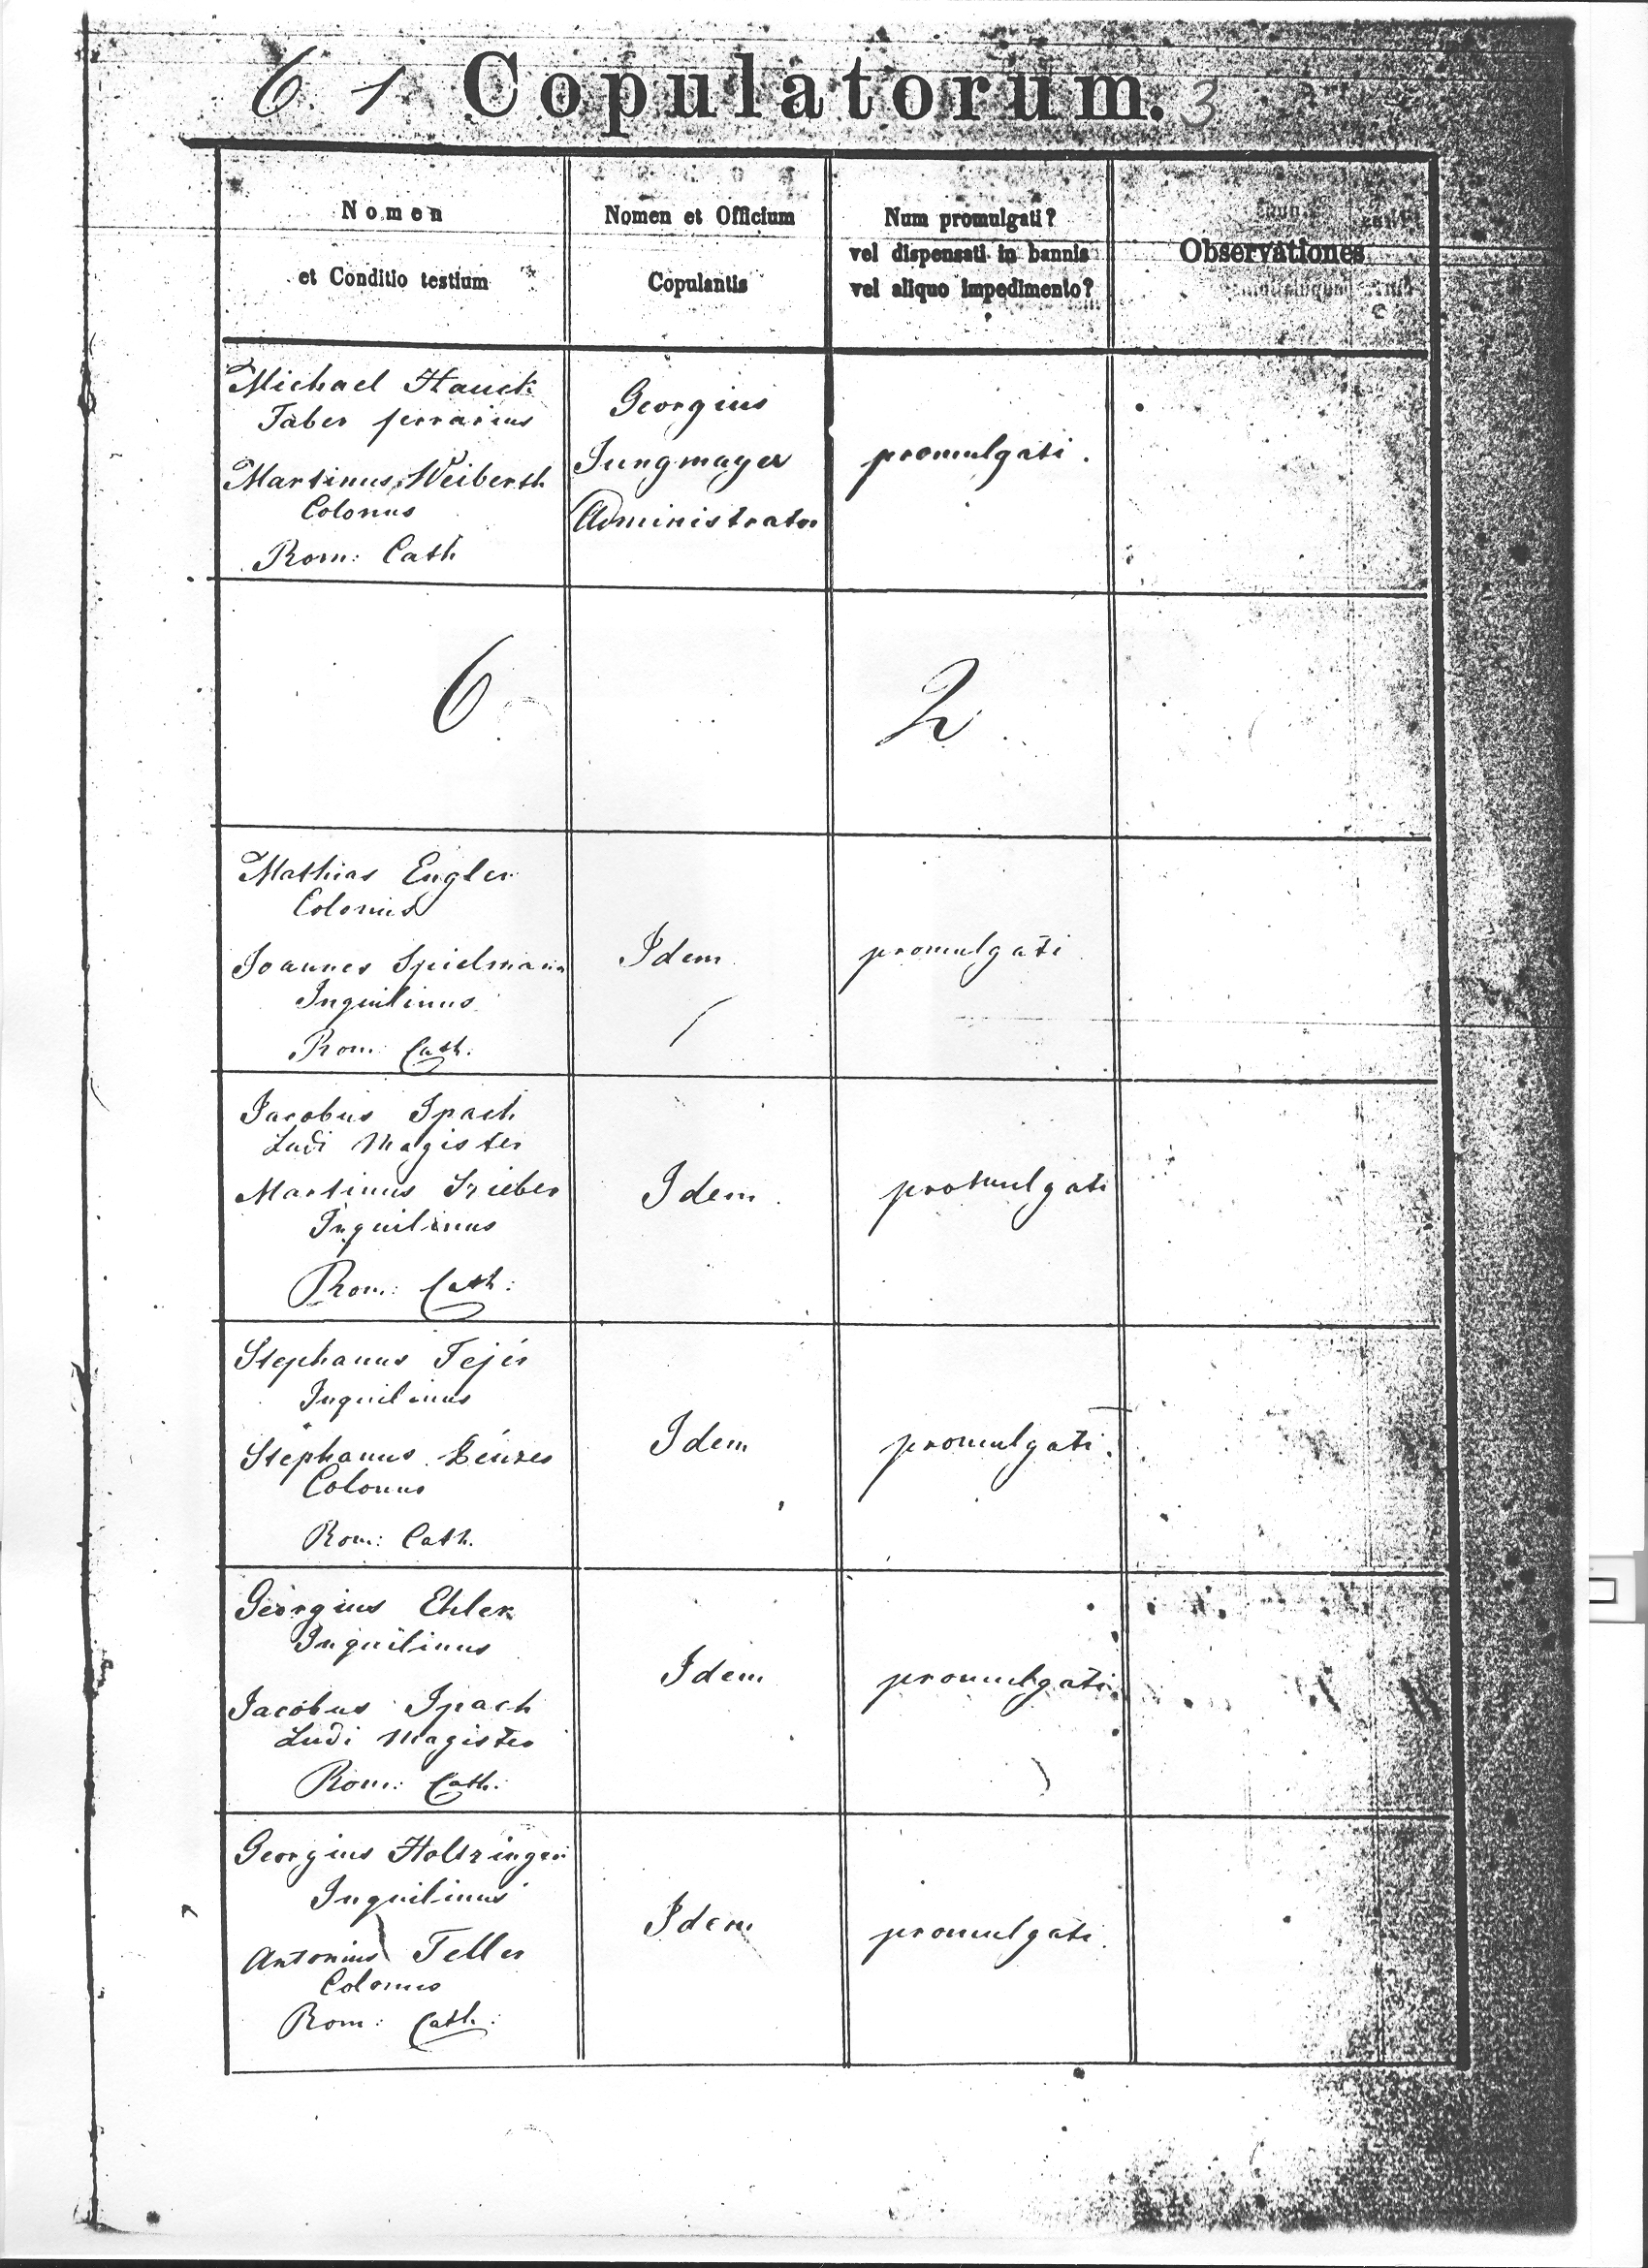 6. 1 Copulatorum. 3
Nomen
et Conditio testium
Nomen et Officium
Copulantis
Num promulgati?
vel dispensati in bannis
vel aliquo impedimento?
Observationes
Michael Hauck
Faber ferrarius
Martinus Weiberth
Colonus
Rom: Cath
Georgius
Jungmayer
Administrator
promulgati.
6
2
Mathias Engler
Colonus
Joannes Spielmann
Inquilinus
Rom: Cath.
Idem
promulgati
Jacobus Ipach
Ludi Magister
Martinus Szieber
Inquilinus
Rom: Cath:
Idem.
promulgati
Stephanus Fejér
Inquilinus
Stephanus Bénzes
Colonus
Rom: Cath.
Idem
promulgati.
Georgius Ehler
Inquilinus
Jacobus Ipach
Ludi Magister
Rom: Cath:
Idem
promulgati
Georgius Holtzinger
Inquilinus
Antonius Teller
Colonus
Rom: Cath:
Idem
promulgati.